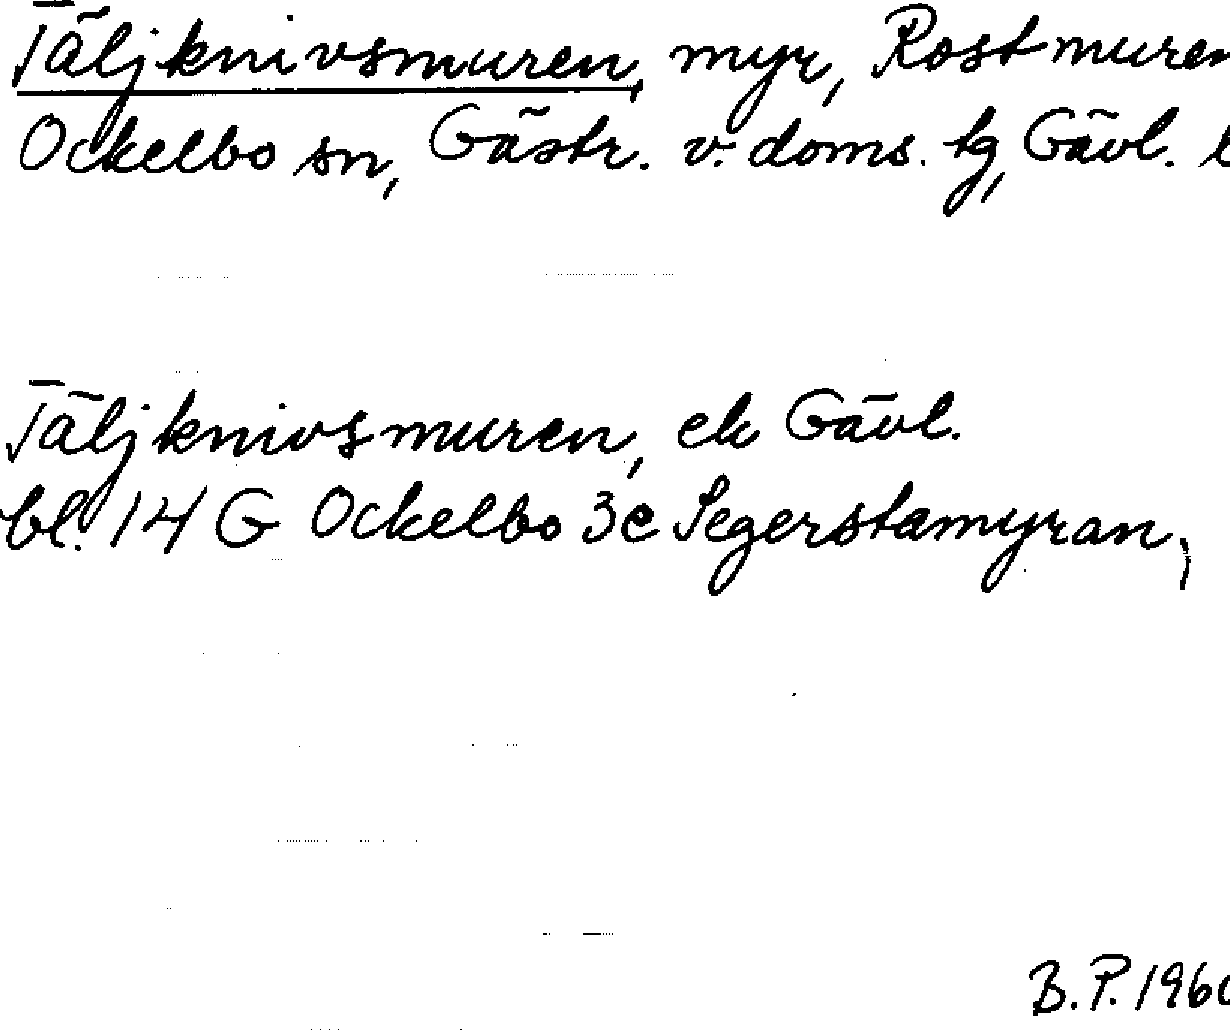 Täljknivsmuren, myr, Rostmuren
Ockelbo sn, Gästr. v. doms. tg, Gävl. l
Täljknivsmuren, ek Gävl.
bl. 14 G Ockelbo 3e Segerstamyran,
B. P. 1960